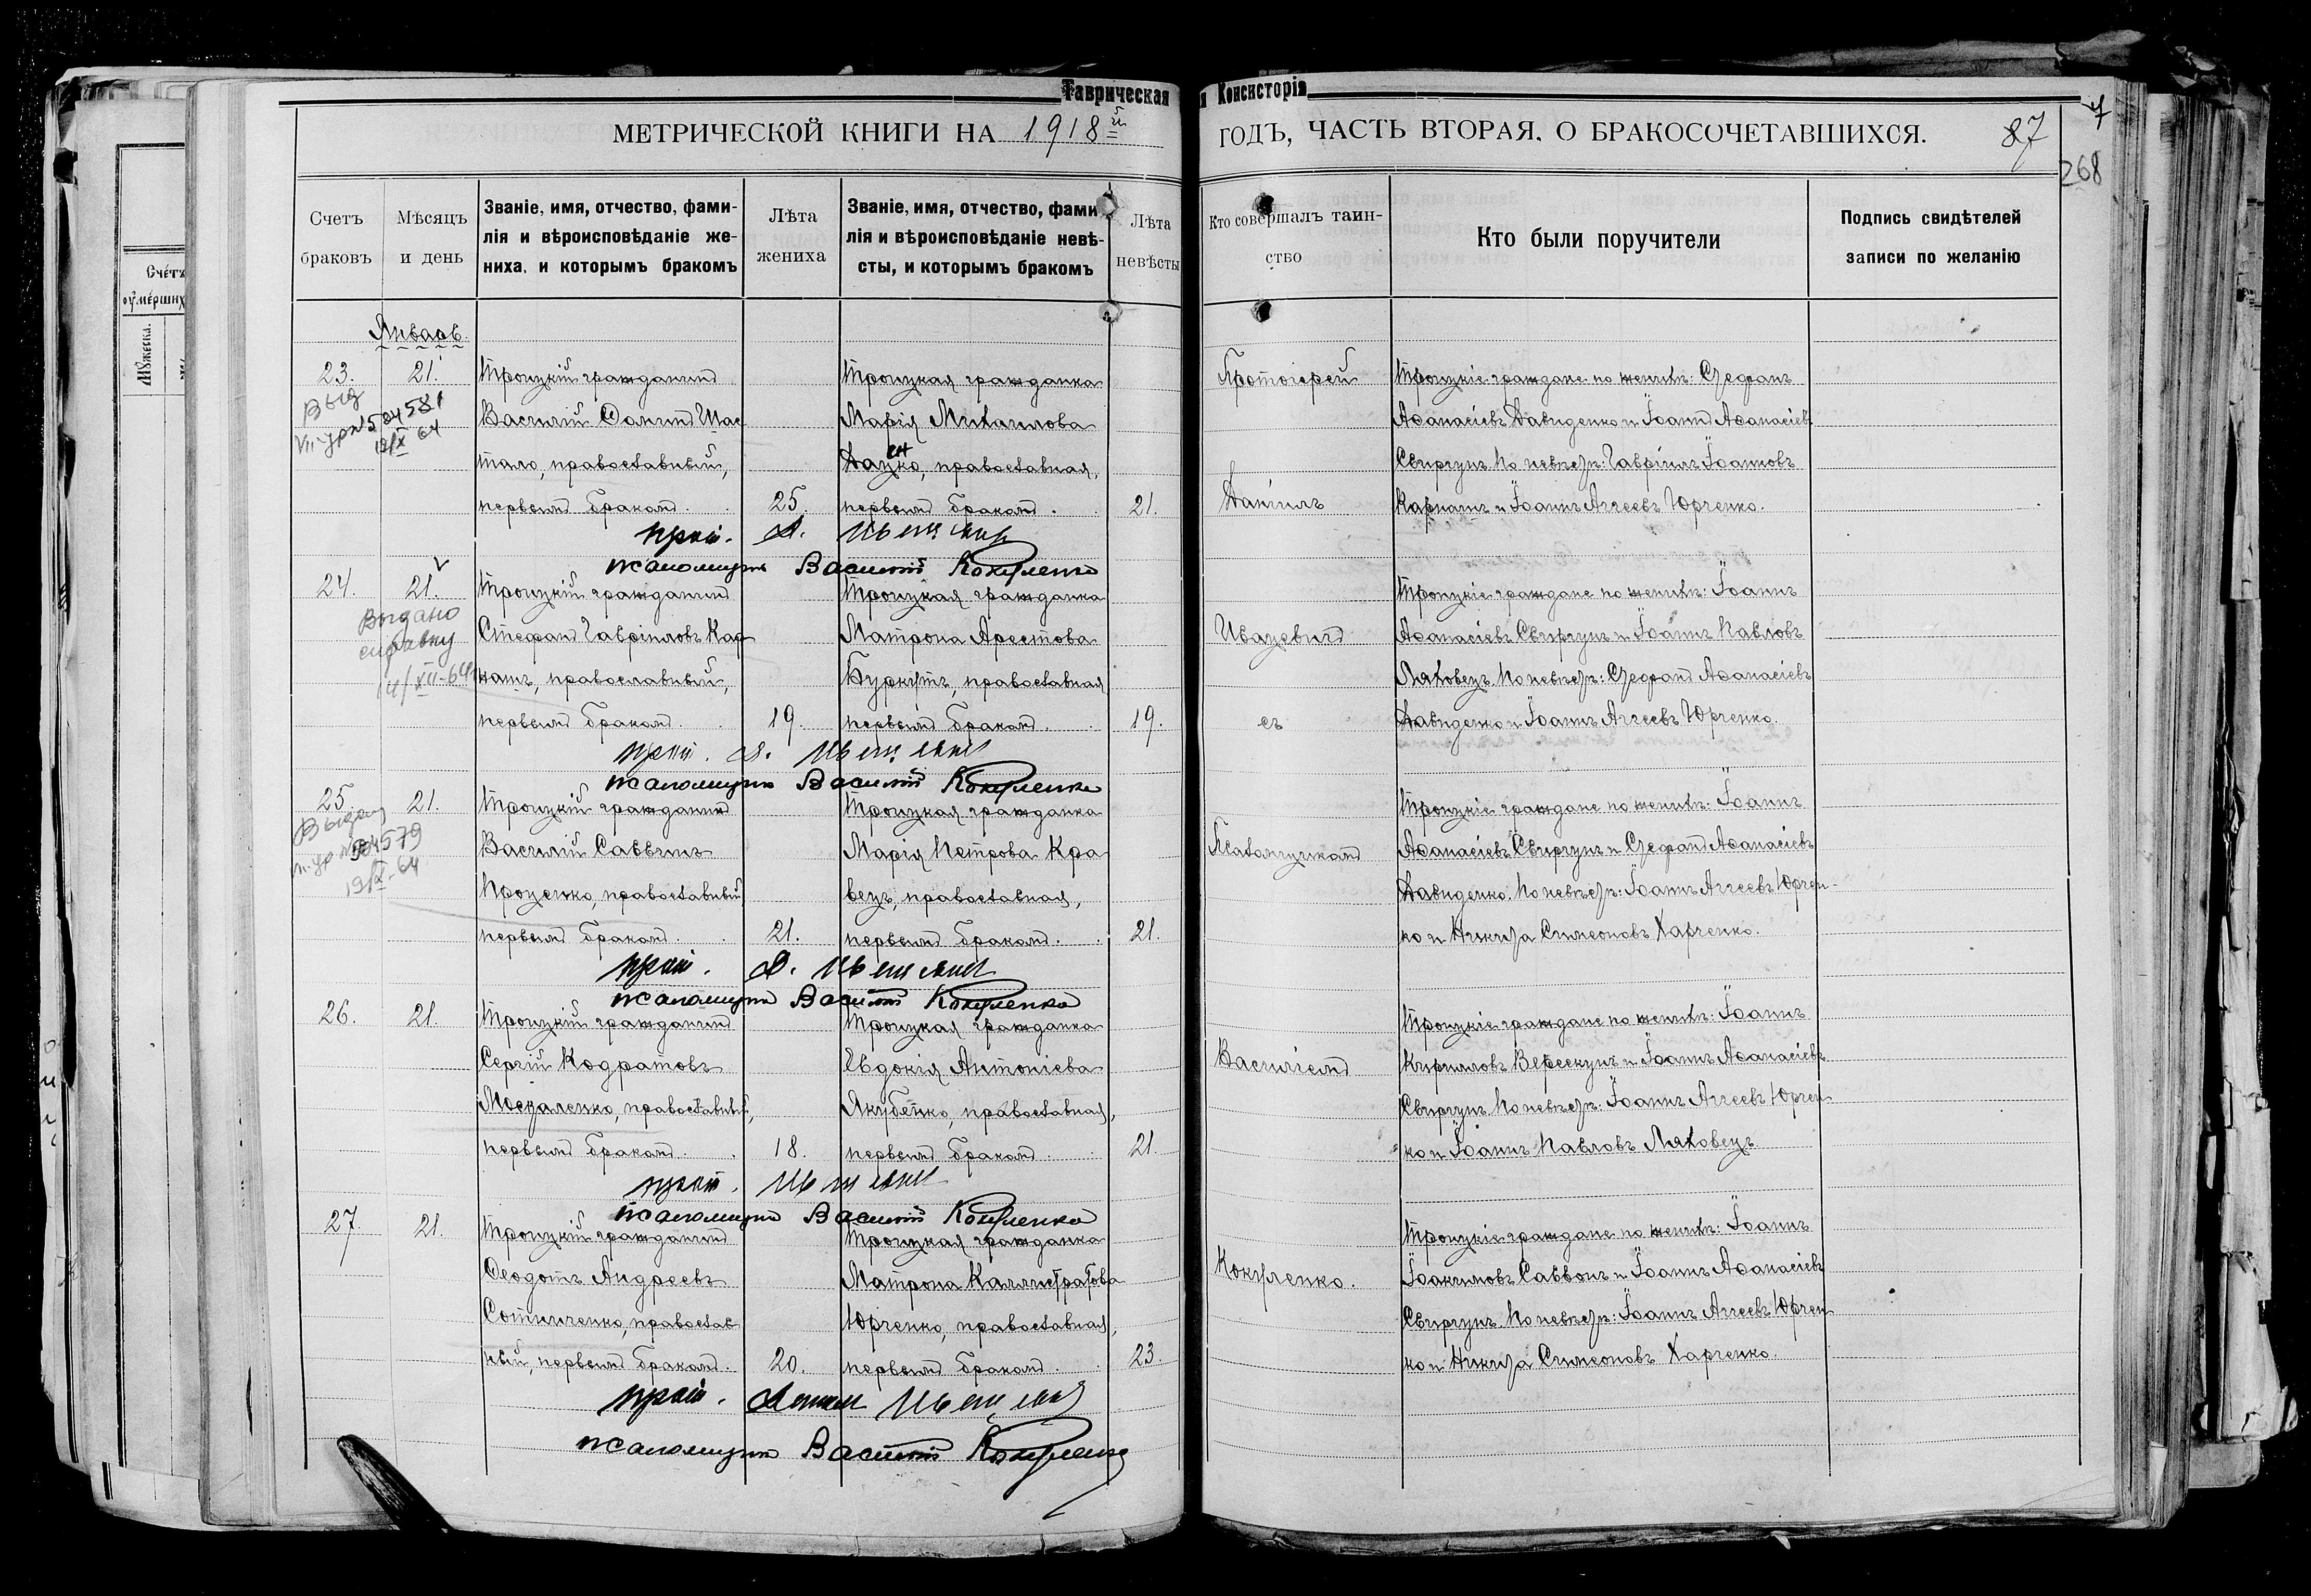 Таврическая Консисторія
МЕТРИЧЕСКОЙ КНИГИ НА 1918й ГОДЪ, ЧАСТЬ ВТОРАЯ, О БРАКОСОЧЕТАВШИХСЯ.
87
7
268
Счетъ браковъ
Мѣсяцъ и день
Званіе, имя, отчество, фами-
лія и вѣроисповѣданіе же-
ниха, и которымъ бракомъ
Лѣта жениха
Званіе, имя, отчество, фами
лія и вѣроисповѣданіе невѣ-
сты, и которымъ бракомъ
Лѣта невѣсты
Кто совершалъ таин-
ство
Кто были поручители
Подпись свидѣтелей
записи по желанію
Счетъ
оумершихъ
Мужеска.
Январь.
23.
21.
Троицкій гражданинъ
Василій Ѳоминъ Шас
тало, православный,
первымъ бракомъ.
25.
Троицкая гражданка
Марія Михаилова
православная,
первымъ бракомъ.
21.
Троицкіе граждане по женихѣ: Стефанъ
Аѳанасіевъ Давиденко и Іоаннъ Аѳанасіевъ
Свиргунъ. По невѣстѣ: Гавріилъ Іоанновъ
Карнашъ и Іоаннъ Аггеевъ Юрченко.
прот. Д.
псаломщикъ Василій Кокуленко
24.
21.
Выдано
справку
14/XII-64
Троицкій гражданинъ
Стефанъ Гавріиловъ Кар
нашъ, православный,
первымъ бракомъ.
19.
Троицкая гражданка
Матрона Арестова
Буркутъ, православная
первымъ бракомъ.
19.
Троицкіе граждане по женихѣ: Іоаннъ
Аѳанасіевъ Свиргунъ и Іоаннъ Павловъ
Ляховецъ. По невѣстѣ: Стефанъ Аѳанасіевъ
Давиденко и Іоаннъ Аггеевъ Юрченко.
прот. Д.
псаломщикъ Василій Кокуленко
25.
21.
Троицкій гражданинъ
Василій Саввинъ
Проценко, православный
первымъ бракомъ.
21.
Троицкая гражданка
Марія Петрова Кра
вецъ, православная,
первымъ бракомъ.
21.
Троицкіе граждане по женихѣ: Іоаннъ
Аѳанасіевъ Свиргунъ и Стефанъ Аѳанасіевъ
Давиденко. По невѣстѣ: Іоаннъ Аггеевъ Юрчен-
ко и Никита Симеоновъ Харченко.
прот. Д.
псаломщикъ Василій Кокуленко
26.
21.
Троицкій гражданинъ
Сергій Кодратовъ
Москаленко, православный,
первымъ бракомъ.
18.
Троицкая гражданка
Евдокія Антоніева
Якубенко, православная,
первымъ бракомъ.
21
Троицкіе граждане по женихѣ: Іоаннъ
Кирилловъ Верескунъ и Іоаннъ Аѳанасіевъ
Свиргунъ. По невѣстѣ: Іоаннъ Аггеевъ Юрчен
ко и Іоаннъ Павловъ Ляховецъ
прот.
псаломщикъ Василій Кокуленко
27.
21.
Троицкій гражданинъ
Ѳеодотъ Андреевъ
Сотниченко, православ
ный, первымъ бракомъ.
20.
Троицкая гражданка
Матрона Каллистратова
Юрченко, православная,
первымъ бракомъ.
23.
Троицкіе граждане по женихѣ: Іоаннъ
Іоакимовъ Саввонъ и Іоаннъ Аѳанасіевъ
Свиргунъ. По невѣстѣ: Іоаннъ Аггеевъ Юрчен
ко и Никита Симеоновъ Харченко.
прот.
псаломщикъ Василій Кокуленко
Протоіерей
Даніилъ
Ивацевичъ
съ
Псаломщикомъ
Василіемъ
Кокуленко.